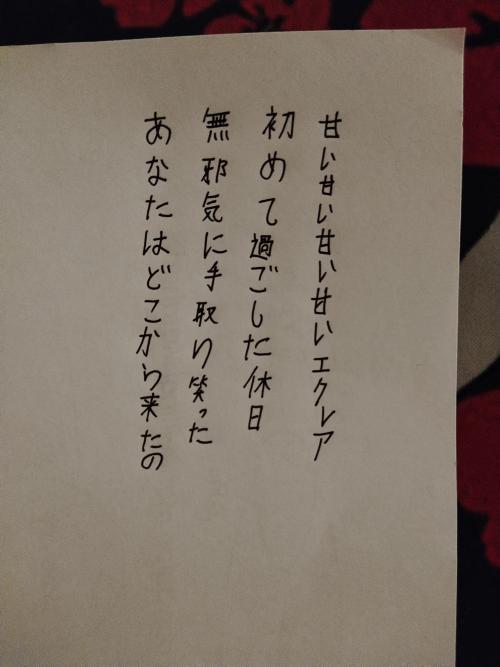 甘い甘い甘い甘いエクレア
初めて過ごした休日
無邪気に手取り笑った
あなたはどこから来たの